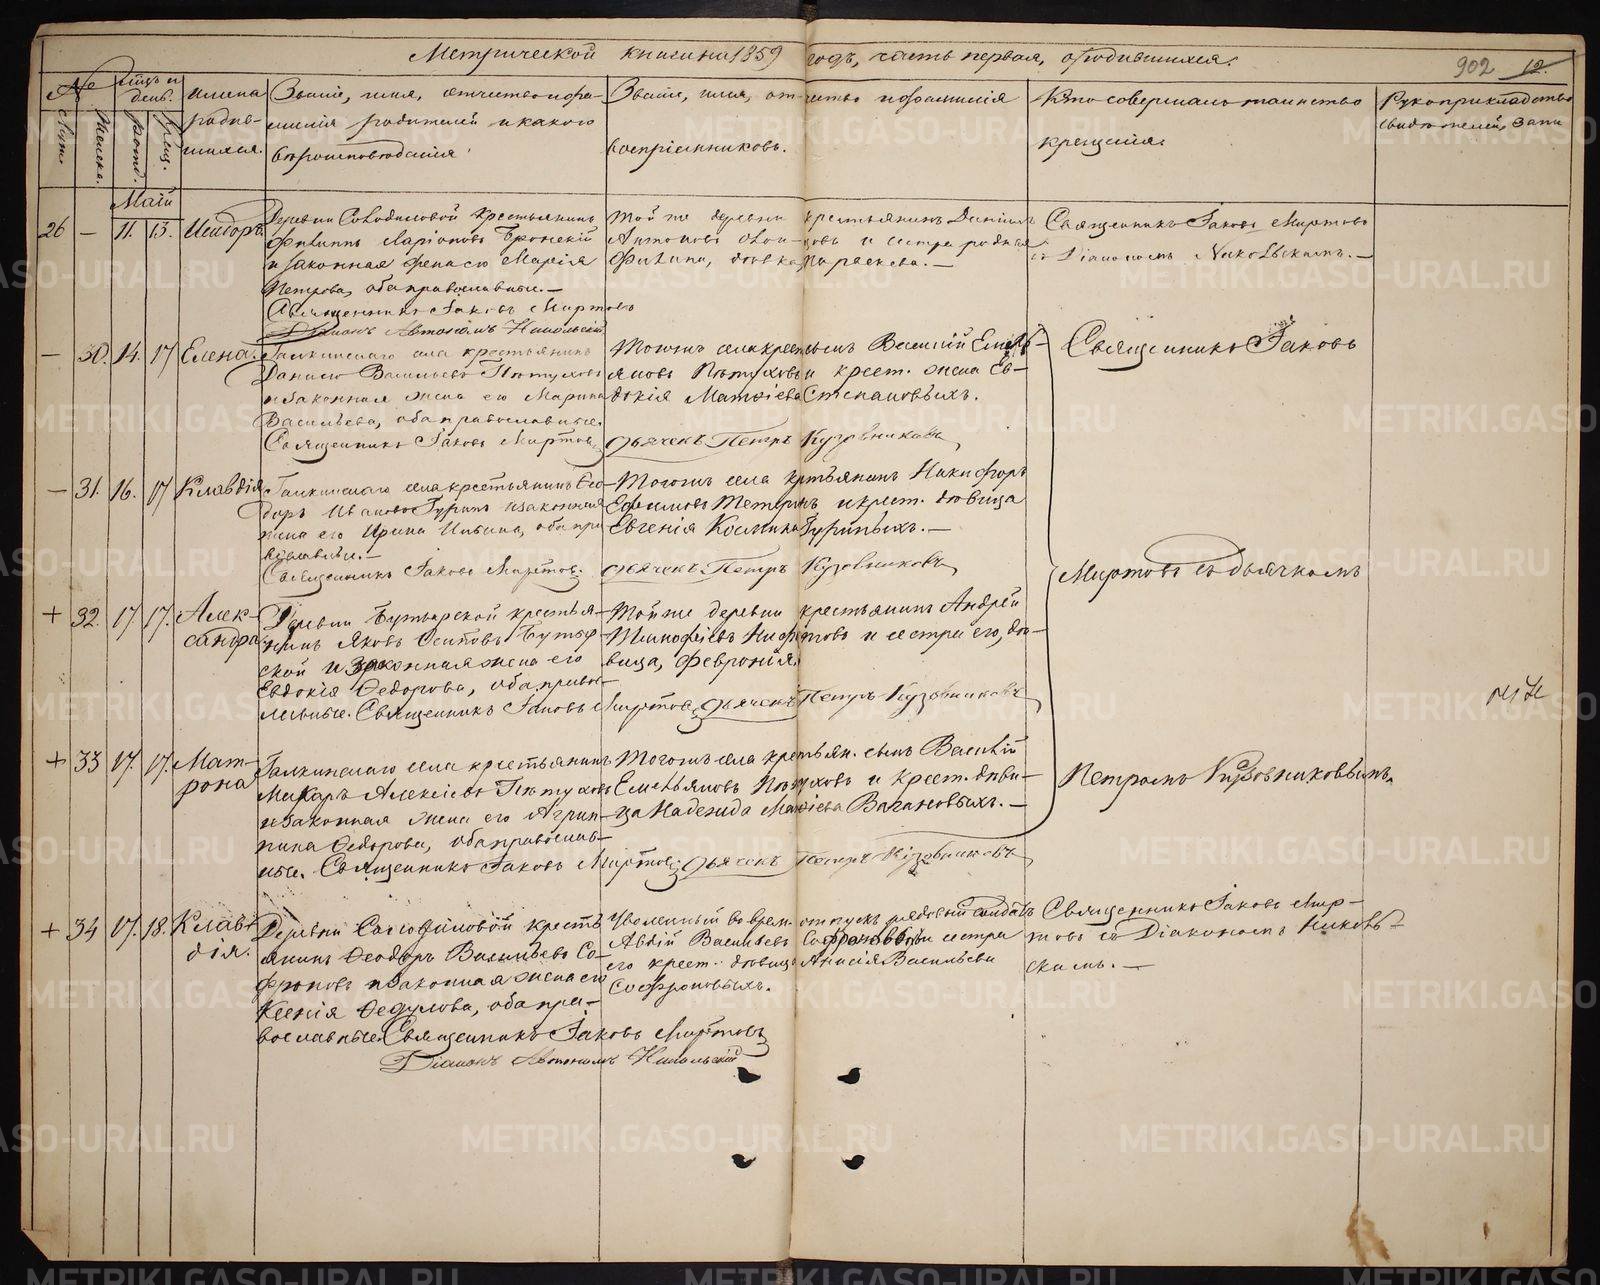 Метрической книги на 1859 годъ, часть первая, о родившихся.
902 12.
№
Мѣсяцъ и день.
Муж.
Женск.
рожд.
крещ.
имена родив-
шихся.
Званіе, имя, отчество и фа-
милія родителей и какого
вѣроисповѣданія.
Званіе, имя, отчество и фамилія
воспріемниковъ.
Кто совершалъ таинство
крещенія.
Рукоприкладство
свидѣтелей
Маій
26 — 11. 13. Исидоръ.
Деревни крестьянинъ
Филиппъ Ларіоновъ
и законная жена его Марія
Петрова, оба православные.—
Священникъ Іаковъ Миртовъ
Діаконъ Автономъ Никольскій
Той же деревни крестьянинъ Даніилъ
Антоновъ и сестра родная
Филипа, дѣвка Параскева.—
Священникъ Іаковъ Миртовъ
съ Діакономъ Никольскимъ.—
— 30. 14. 17 Елена.
Галкинскаго села крестьянинъ
Данило Васильевъ Пѣтуховъ
и законная жена его Марина
Васильева, оба православные.
Священникъ Іаковъ Миртовъ,
Тогожъ села крест. сынъ Василій Емель-
яновъ Пѣтуховъ и крест. жена Ев-
докія Матѳіева Степановыхъ.
дьячекъ Петръ Кузовниковъ
Священникъ Іаковъ
— 31. 16. 17 Клавдія
Галкинскаго села крестьянинъ Ѳео-
доръ Ивановъ Гуринъ и законная
жена его Ирина Ивана, оба пра-
вославные.—
Священникъ Іаковъ Миртовъ.
Тогожъ села крестьянинъ Никифоръ
Ефимовъ Тетеринъ и крест. дѣвица
Евгенія Козмина Гуриныхъ.—
дьячекъ Петръ Кузовниковъ
Миртовъ съ дьячкомъ
+ 32. 17 17. Алек-
сандра
Деревни Бутырской крестья-
нинъ Яковъ Осиповъ Бутыр-
ской и законная жена его
Евдокія Ѳедорова, оба право-
славные. Священникъ Іаковъ Миртовъ, дьячекъ Петръ Кузовниковъ
Той же деревни крестьянинъ Андрей
и сестра его, дѣ-
вица, Февронія.
+ 33 17. 17. Мат-
рона
Галкинскаго села крестьянинъ
Макаръ Алексіевъ Пѣтуховъ
и законная жена его Агрип-
пина Ѳедорова, оба православ-
ные. Священникъ Іаковъ Миртовъ, дьячекъ Петръ Кузовниковъ
Тогожъ села крестьян. сынъ Василій
Емельяновъ Пѣтуховъ и крест. дѣви-
ца Надежда Матѳіева Вагановыхъ.—
Петромъ Кузовниковымъ.
+ 34 17. 18. Клав-
дія.
Деревни крестъ-
янинъ Ѳеодоръ Васильевъ Со-
фроновъ и законная жена его
Ксенія Ѳедулова, оба пра-
вославные. Священникъ Іаковъ Миртовъ
Діаконъ Автономъ Никольскій
Уволенный во врем. отпускъ рядовый солдатъ
Авдій Васильевъ Софроновъ и сестра
его крест. дѣвица Анисія Васильева
Софроновыхъ.
Священникъ Іаковъ Мир-
товъ съ Діакономъ Николь-
скимъ.—
METRIKI.GASO-URAL.RU